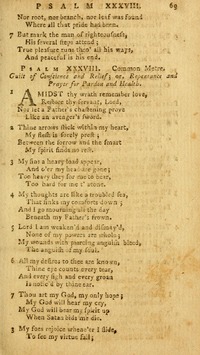 PSALM XXXVIII. 69
Nor root, nor branch, nor leaf was found
Where all that pride had been.
7 But mark the man of righteousness,
His several steps attend;
True pleasure runs thro' all his ways,
And peaceful is his end.
PSALM XXXVIII. Common Metre.
Guilt of Conscience and Relief; or, Repentance and
Prayer for Pardon and Health.
1 AMIDST thy wrath remember love,
Restore thy servant, Lord,
Nor let a Father's chastening prove
Like an avenger's sword.
2 Thine arrows stick within my heart,
My flesh is sorely prest;
Between the sorrow and the smart
My spirit finds no rest.
3 My sins a heavy load appear,
And o'er my head are gone;
Too heavy they for me to bear,
Too hard for me t' atone.
4 My thoughts are like a troubled sea,
That sinks my comforts down;
And I go mourning all the day
Beneath my Father's frown.
5 Lord I am weaken'd and dismay'd,
None of my powers are whole;
My wounds with piercing anguish bleed,
The anguish of my soul.
6 All my desires to thee are known,
Thine eye counts every tear,
And every sigh and every groan
Is notic'd by thine ear.
7 Thou art my God, my only hope;
My God will hear my cry,
My God will bear my spirit up
When Satan bids me die.
3 My foes rejoice whene'er I slide,
To see my virtue fail;